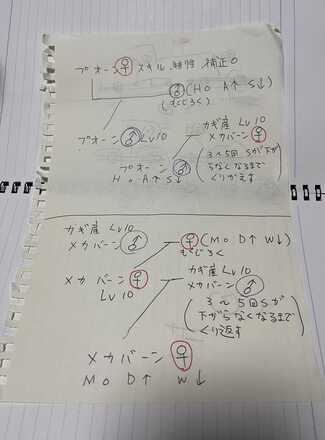 プオーン♀ スキル、特性、補正○
♂(H○ A↑ S↓)
(むじろく)
プオーン♂ Lv10
カギ産 Lv10
メカバーン♀
プオーン♂
H○ A↑ S↓
(3〜5回 Sが下が
らなくなるまで
くりかえす)
カギ産 Lv10
メカバーン♂
♀(M○ D↑ W↓)
むじろく
メカバーン♀
Lv10
カギ産 Lv10
メカバーン♂
(3〜5回Sが
下がらなくなるまで
くり返す)
メカバーン♀
M○ D↑ W↓